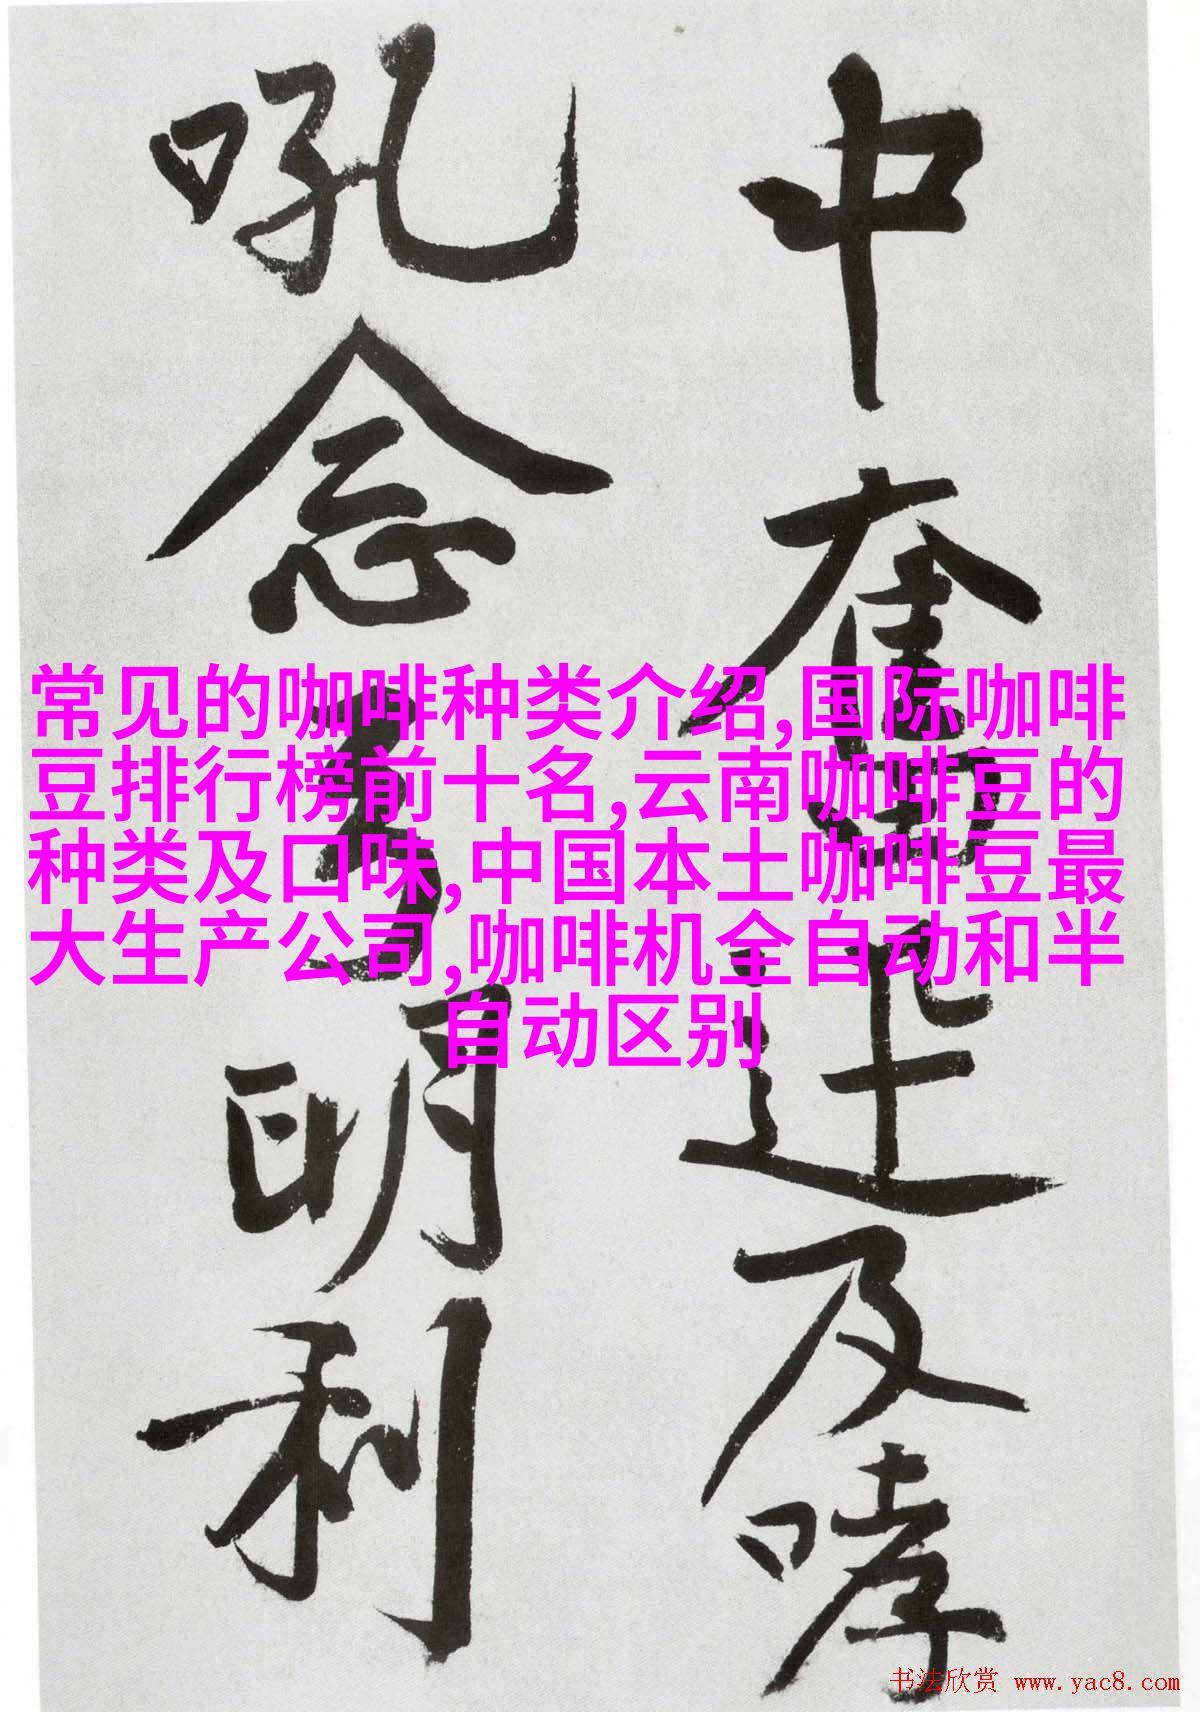 中奮迅及哮
吼念明利
常见的咖啡种类介绍,国际咖啡
豆排行榜前十名,云南咖啡豆的
种类及口味,中国本土咖啡豆最
大生产公司,咖啡机全自动和半
自动区别
书法欣赏 www.yac8.com